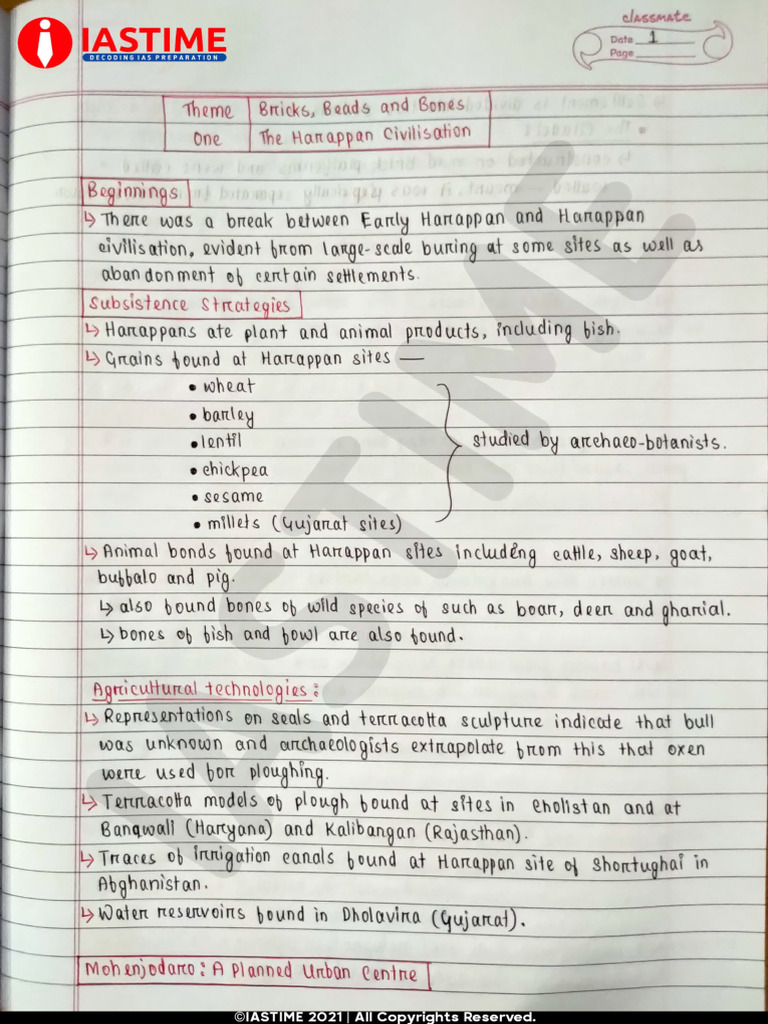 IASTIME
DECODING IAS PREPARATION
classmate
Date 1
Page
Theme Bricks, Beads and Bones
One The Harappan Civilisation
Beginnings
↳ There was a break between Early Harappan and Harappan
civilisation, evident from large-scale buring at some sites as well as
abandonment of certain settlements.
Subsistence Strategies
↳ Harappans ate plant and animal products, including fish.
↳ Grains found at Harappan sites —
• wheat
• barley
• lentil
• chickpea
• sesame
• millets (Gujarat sites)
studied by archaeo-botanists.
↳ Animal bonds found at Harappan sites including cattle, sheep, goat,
buffalo and pig.
↳ also found bones of wild species of such as boar, deer and gharial.
↳ bones of fish and fowl are also found.
Agricultural technologies:
↳ Representations on seals and terracotta sculpture indicate that bull
was unknown and archaeologists extrapolate from this that oxen
were used for ploughing.
↳ Terracotta models of plough found at sites in cholistan and at
Banawali (Haryana) and Kalibangan (Rajasthan).
↳ Traces of irrigation canals found at Harappan site of Shortughai in
Afghanistan.
↳ Water reservoirs found in Dholavira (Gujarat).
Mohenjodaro: A Planned Urban Centre
IASTIME
©IASTIME 2021 | All Copyrights Reserved.